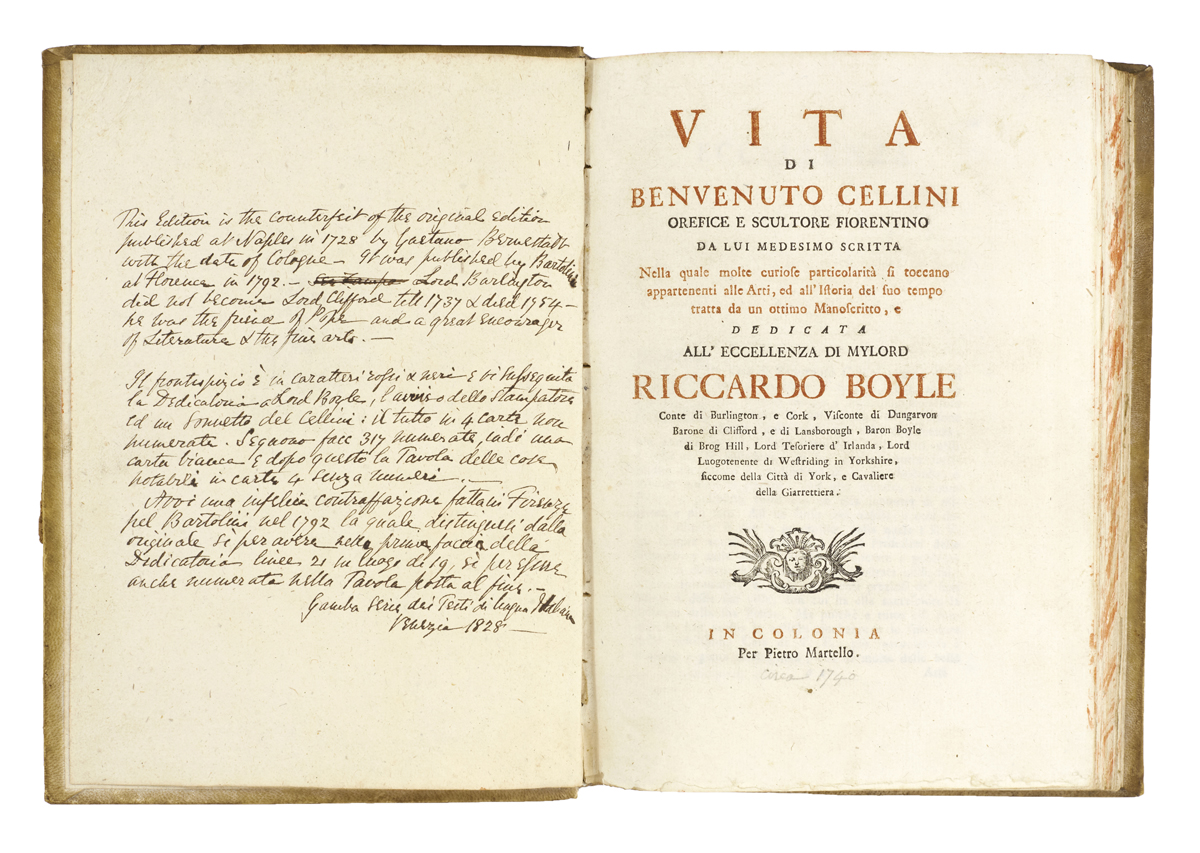 This Edition is the counterfeit of the original edition
published at Naples in 1728 by Gaetano
with the date of Cologne. It was published by Bartolini
at Florence in 1792. — Lord Burlington
did not become Lord Clifford till 1737 & died 1754 —
he was the friend of Pope and a great encourager
of Literature & the fine arts. —
Il frontispizio è in caratteri rossi e neri e vi susseguita
la Dedicatoria a Lord Boyle, l'avviso dello Stampatore
ed un Sonnetto del Cellini: il tutto in 4 carte non
numerate. Seguono facc 317 numerate, indi una
carta bianca e dopo questo la Tavola delle cose
notabili in carte 4 senza numeri. —
Avvi una infelice contraffazione fatta in Firenze
pel Bartolini nel 1792 la quale distinguesi dalla
originale sì per avere nella prima faccia della
Dedicatoria linee 21 in luogo di 19, sì per essere
anche numerata nella Tavola posta al fine. —
Gamba Serie dei Testi di Lingua
1828 —
VITA
DI
BENVENUTO CELLINI
OREFICE E SCULTORE FIORENTINO
DA LUI MEDESIMO SCRITTA
Nella quale molte curioſe particolarità ſi toccano
appartenenti alle Arti, ed all' Iſtoria del ſuo tempo
tratta da un ottimo Manoſcritto, e
DEDICATA
ALL' ECCELLENZA DI MYLORD
RICCARDO BOYLE
Conte di Burlington, e Cork, Viſconte di Dungarvon
Barone di Clifford, e di Lansborough, Baron Boyle
di Brog Hill, Lord Teſoriere d' Irlanda, Lord
Luogotenente di Weſtriding in Yorkshire,
ſiccome della Città di York, e Cavaliere
della Giarrettiera.
IN COLONIA
Per Pietro Martello.
circa 1740